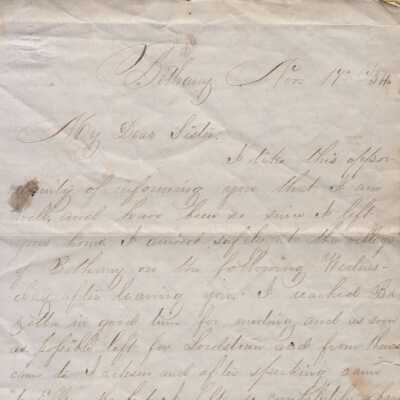 Bethany Nov 17th /54
My Dear Sister,
I take this oppor-
tunity of informing you that I am
well and have been so since I left
your home I arrived safely at the village
of Bethany on the following Wednes-
day after leaving you. I reached
in good time for morning and as soon
as possible left for Lordstown and from
came to Jackson and after speaking